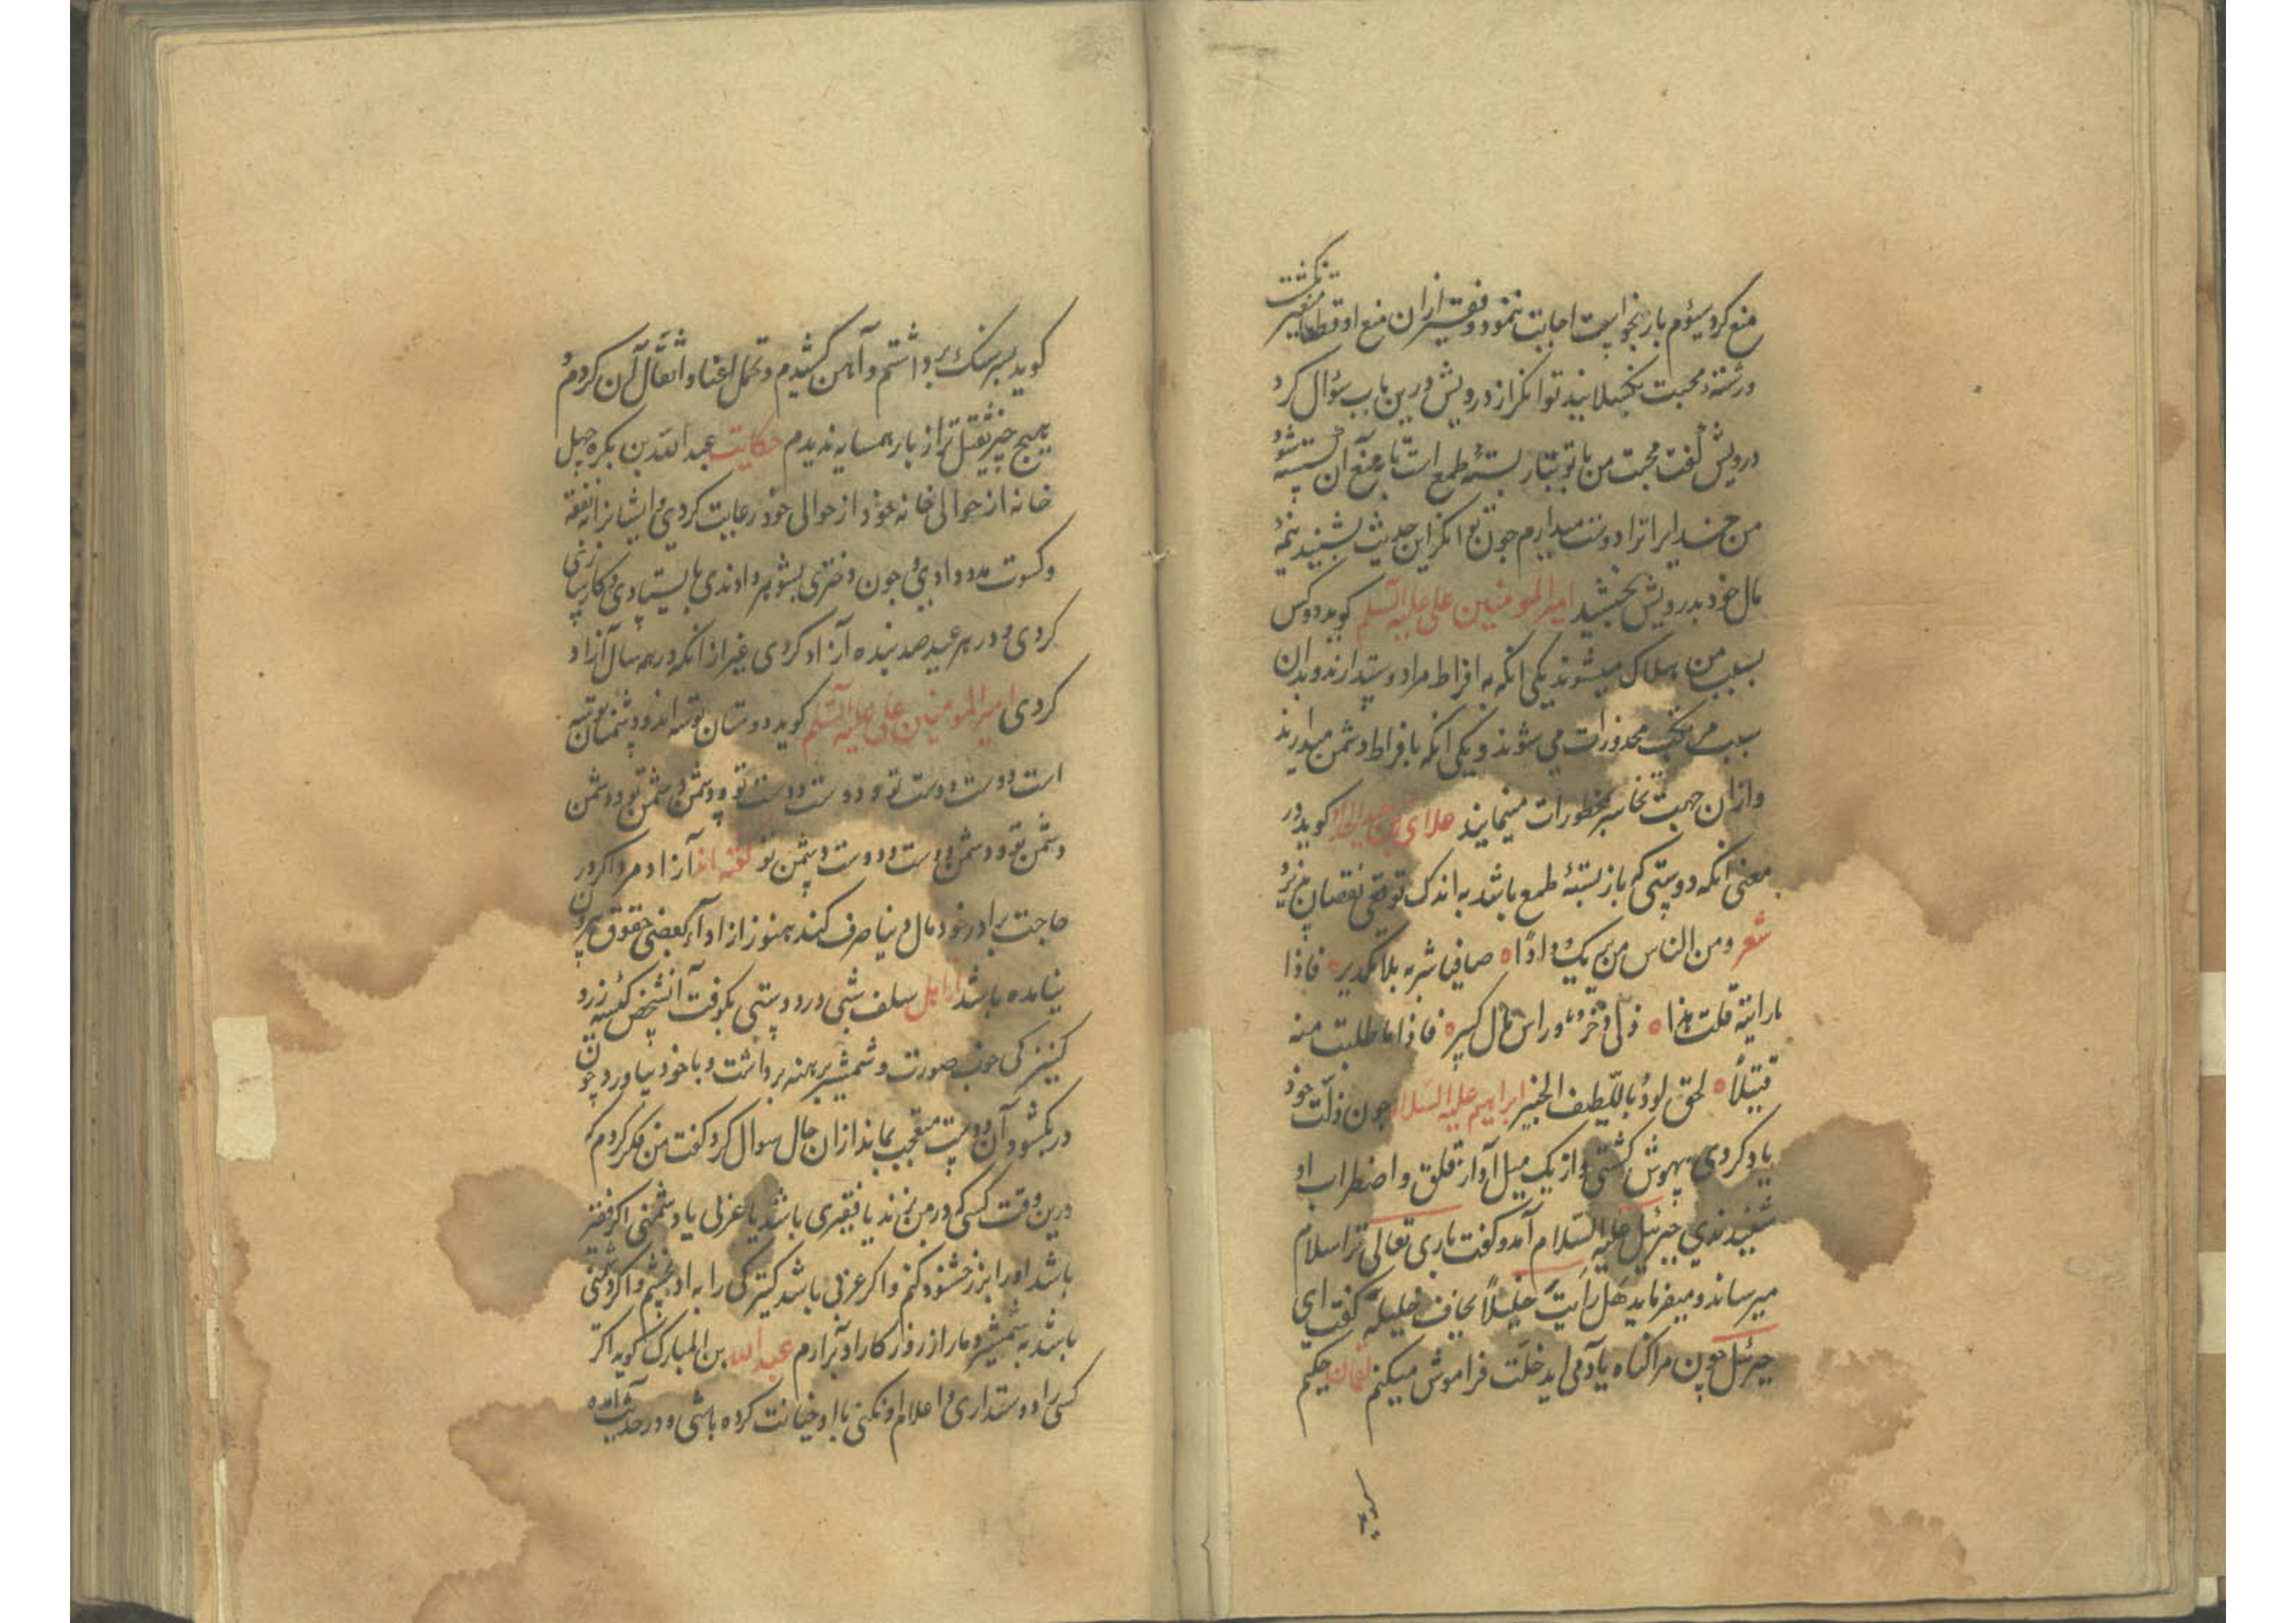 منع کرد سیوم بار بخواست اجابت ننمود و فقیر از ان منع او قطعا متغیر نکشت
و رشتهٔ محبت نکسلانید توانکر از درویش درین باب سؤال کرد
درویش کفت محبت من با تو نه باز بستهٔ طمع است تا بمنع آن شسته شود
من خدایرا ترا دوست میدارم جون توانکر این حدیث بشنید نیمهٔ
مال خود بدرویش بخشید امیر المومنین علی علیه السلم کوید دو کس
بسبب من هلاک میشوند یکی انکه به افراط مرا دوست دارند و بدان
سبب مرتکب محذورات می شوند و یکی انکه بافراط دشمن میدارند
و ازان جهت تحاسر محظورات مینمایند کوید در
معنی انکه دوستی که باز بستهٔ طمع باشد به اندک توقعی نقصان پذیرد
شعر ومن الناس من یریک ودادًا صافیا شربه بلا تکدیر فاذا
ما رایته قلت هذا ذلی ذخر وراس مال کبیر فاذا ما طلبت منه
قتیلاً لحق الود باللطیف الخبیر ابراهیم علیه السلام جون ذلت خود
یاد کردی بیهوش کشتی و از یک میل آواز قلق و اضطراب او
شنیدندی جبرئیل علیه السلام آمد و کفت باری تعالی ترا سلام
میرساند و میفرماید هَل رَاَیتَ خلیلاً یخاف خلیله کفت ای
جبرئیل چون مرا کناه یاد می اید خلّت فراموش میکنم لقمان حکیم
کوید
کوید بسر سنک برداشتم و آهن کشیدم و تحمل اعنا و اثقال آن کردم و
هیچ جیز ثقیل تر از بار همسایه ندیدم حکایت عبد الله بن بکره چهل
خانه از حوالی خانه خود از حوالی خود رعایت کردی و ایشانرا نفقه
و کسوت مدد دادی و جون دختری بشوهر دادندی بایستادی و کار سازی
کردی و در هر عید صد بنده آزاد کردی غیر از انکه در همه سال آزاد
کردی امیر المومنین علی علیه السلم کوید دوستان تو سه اند و دشمنان تو سه
است دوست و دوست تو و دوست دوست تو و دشمن دشمن تو و دشمن
دشمن تو و دشمن دوست و دوست دشمن تو کفته اند آزاد مرد اکر در
حاجت برادر خود مال دنیا صرف کند هنوز از ادآء بعضی حقوق بیرون
نیامده باشد سلف شبی در دوستی بکوفت آنشخص کیسهٔ زر و
کنیزکی خوب صورت و شمشیر برهنه برداشت و با خود بیاورد چون
در بکشود آن دوست متعجب بماند از ان حال سوال کرد کفت من فکر کردم که
درین وقت کسی که در من زند یا فقیری باشد یا عزبی یا دشمنی اکر فقیر
باشد او را بزر خشنود کنم و اکر عزبی باشد کنیزکی را به او بخشم و اکر دشمنی
باشد به شمشیر دمار از روز کار او برارم عبد الله بن المبارک کوید اکر
کسی را دوستداری و اعلام او نکنی با او خیانت کرده باشی و در حدیث آمده